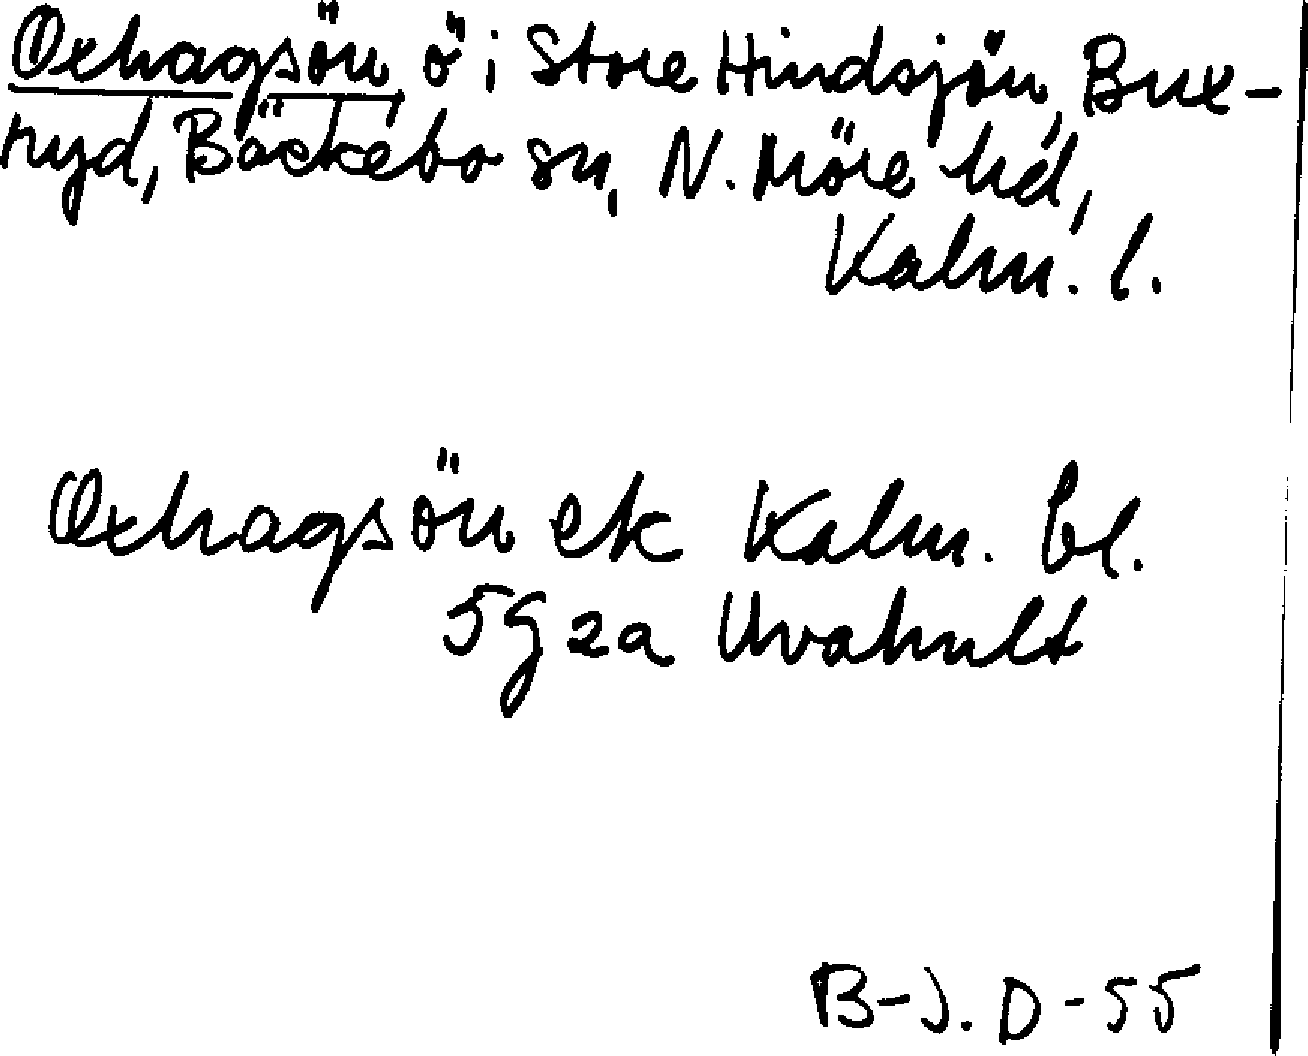 Oxhagsön, ö i Store Hindsjön, Bux-
ryd, Bäckebo sn, N. Möre hd,
Kalm. l.
Oxhagsön ek Kalm. bl.
5G 2a Uvahult
B-J. D-55